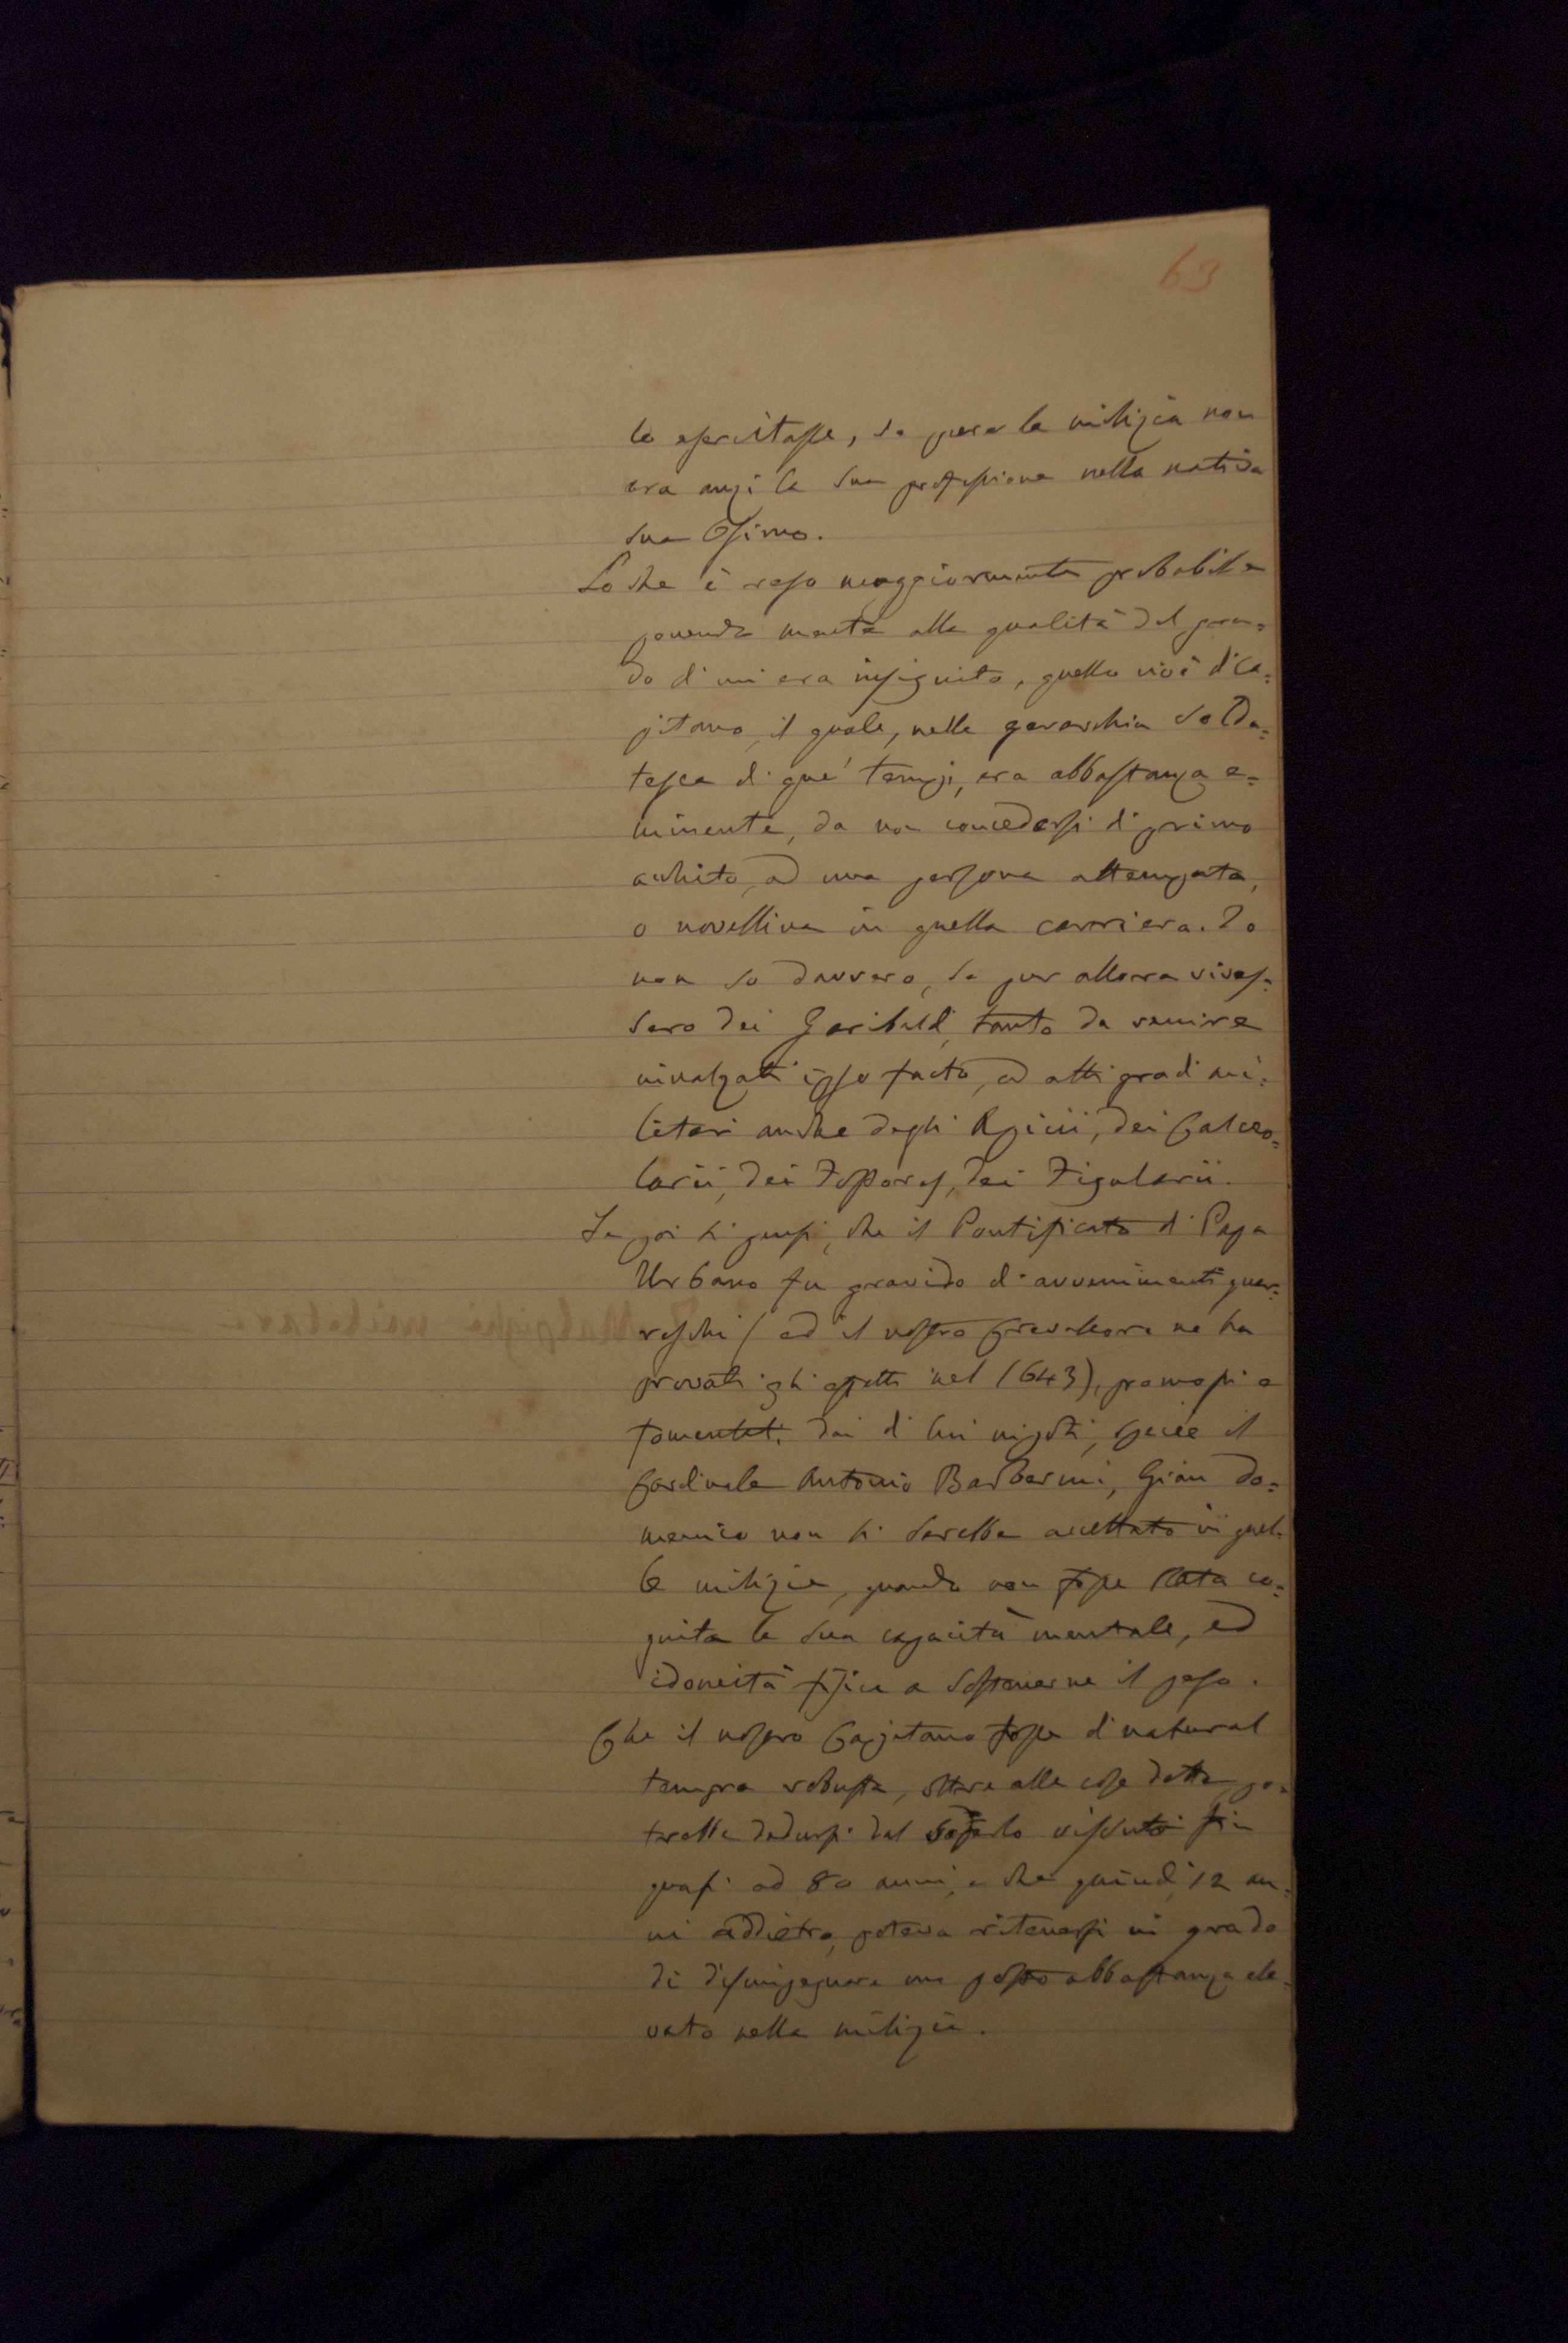 63
lo esercitasse, se pure la milizia non
era anzi la sua professione nella nativa
sua Osimo.
Lo che è reso maggiormente probabile
ponendo mente alla qualità del gra=
do di cui era insignito, quello cioè di Ca=
pitano, il quale, nella gerarchia solda=
tesca di que' tempi, era abbastanza e=
minente, da non concedersi di primo
acchito, ad una persona attempata,
o novellina in quella carriera. Io
non so davvero, se pur allora vives=
sero dei Garibaldi, tanto da venire
innalzati ipso facto, ad alti gradi mi=
litari anche degli Apicii, dei Calceo=
larii, dei Topores, dei Figularii.
Se poi si pensi, che il Pontificato di Papa
Urbano fu gravido di avvenimenti guer=
reschi (ed il nostro Crevalcore ne ha
provati gli effetti nel 1643), promossi e
fomentati dai di lui nipoti, specie il
Cardinale Antonio Barberini, Gian Do=
menico non si sarebbe accettato in quel=
le milizie, quando non fosse stata co=
gnita la sua capacità mentale, ed
idoneità fisica a sostenerne il peso.
Che il nostro Capitano fosse di natural
tempra robusta, oltre alle cose dette, po=
trebbe dedursi dal saperlo vissuto fin
quasi ad 80 anni, e che quindi 12 an=
ni addietro, poteva ritenersi in grado
di disimpegnare un posto abbastanza ele=
vato nella milizia.